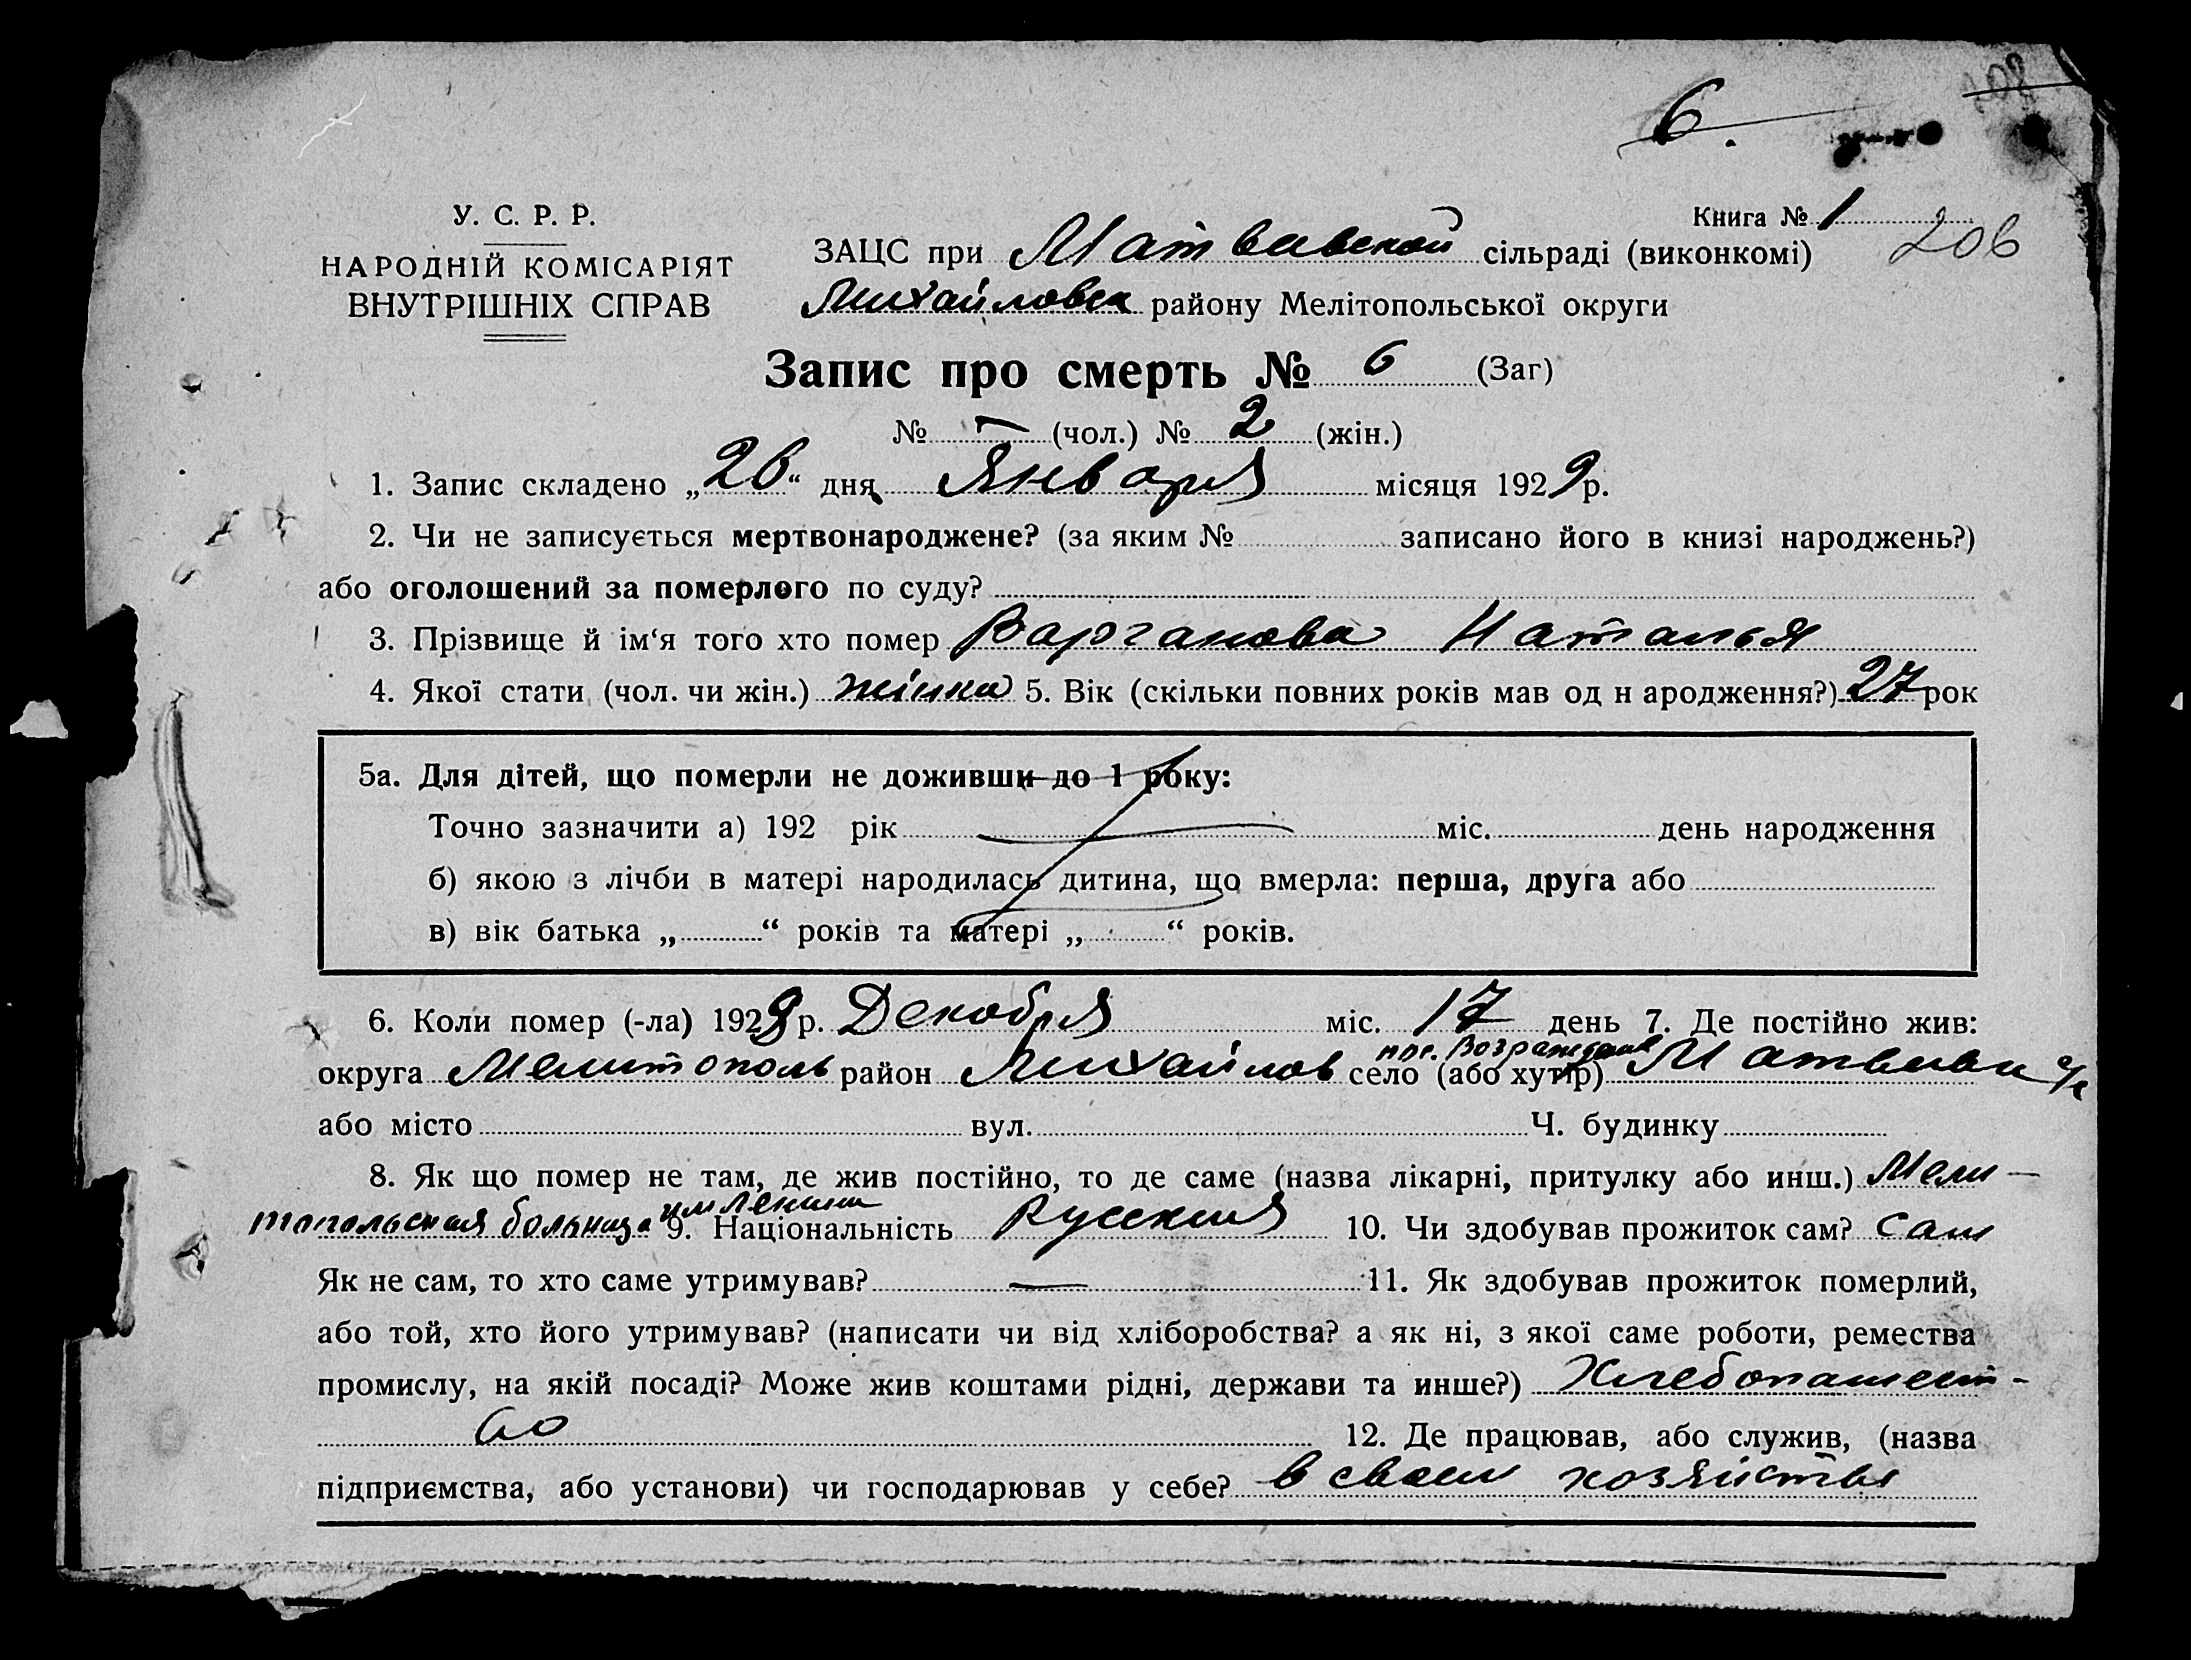 6.
У. С. Р. Р.
НАРОДНІЙ КОМІСАРІЯТ
ВНУТРІШНІХ СПРАВ
Книга № 1
206
ЗАЦС при Матвевской сільраді (виконкомі)
Михайловск району Мелітопольської округи
Запис про смерть № 6 (Заг)
№ — (чол.) № 2 (жін.)
1. Запис складено „26“ дня Января місяця 1929 р.
2. Чи не записується мертвонароджене? (за яким № записано його в книзі народжень?)
або оголошений за померлого по суду?
3. Прізвище й ім‘я того хто помер Варганова Наталья
4. Якої стати (чол. чи жін.) жінка 5. Вік (скільки повних років мав од н ародження?) 27 рок
5а. Для дітей, що померли не доживши до 1 року:
Точно зазначити а) 192 рік міс. день народження
б) якою з лічби в матері народилась дитина, що вмерла: перша, друга або
в) вік батька „ “ років та матері „ “ років.
6. Коли помер (-ла) 1928 р. Декабря міс. 17 день 7. Де постійно жив:
пос. Возраждение
округа Мелитополь район Михайлов село (або хутір) с/с
або місто вул. Ч. будинку
8. Як що помер не там, де жив постійно, то де саме (назва лікарні, притулку або инш.) Мели-
топольская больница им Ленина 9. Національність Русския 10. Чи здобував прожиток сам? сам
Як не сам, то хто саме утримував? — 11. Як здобував прожиток померлий,
або той, хто його утримував? (написати чи від хліборобства? а як ні, з якої саме роботи, ремества
промислу, на якій посаді? Може жив коштами рідні, держави та инше?) Хлебопашест-
во 12. Де працював, або служив, (назва
підприємства, або установи) чи господарював у себе? в своем хозяйстве